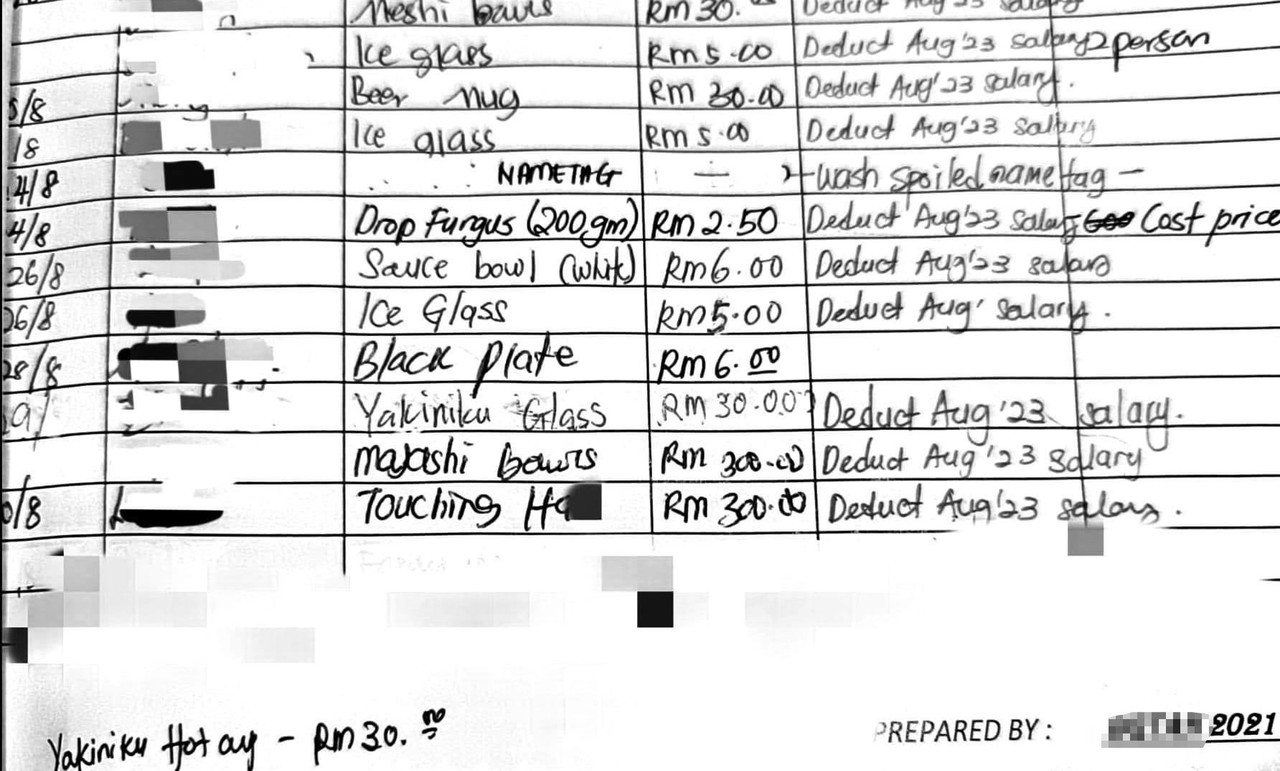 Meshi bowls Rm30.00 Deduct Aug'23 salary
Ice glass Rm5.00 Deduct Aug'23 salary 2person
5/8 Beer Mug Rm 30.00 Deduct Aug'23 salary.
18 Ice glass Rm5.00 Deduct Aug'23 salary
4/8 NAMETAG — wash spoiled name tag —
4/8 Drop Fungus (200gm) Rm 2.50 Deduct Aug'23 salary Cost price
26/8 Sauce bowl (white) Rm6.00 Deduct Aug'23 salary
26/8 Ice Glass Rm5.00 Deduct Aug' salary.
28/8 Black plate Rm6.00
Yakiniku Glass RM 30.00 Deduct Aug '23 salary.
bowls Rm 300.00 Deduct Aug '23 salary
0/8 Touching Rm 300.00 Deduct Aug'23 salary.
Yakiniku Hot - Rm30.00
PREPARED BY : 2021